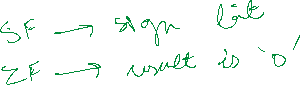 SF → sign bit
ZF → result is '0'